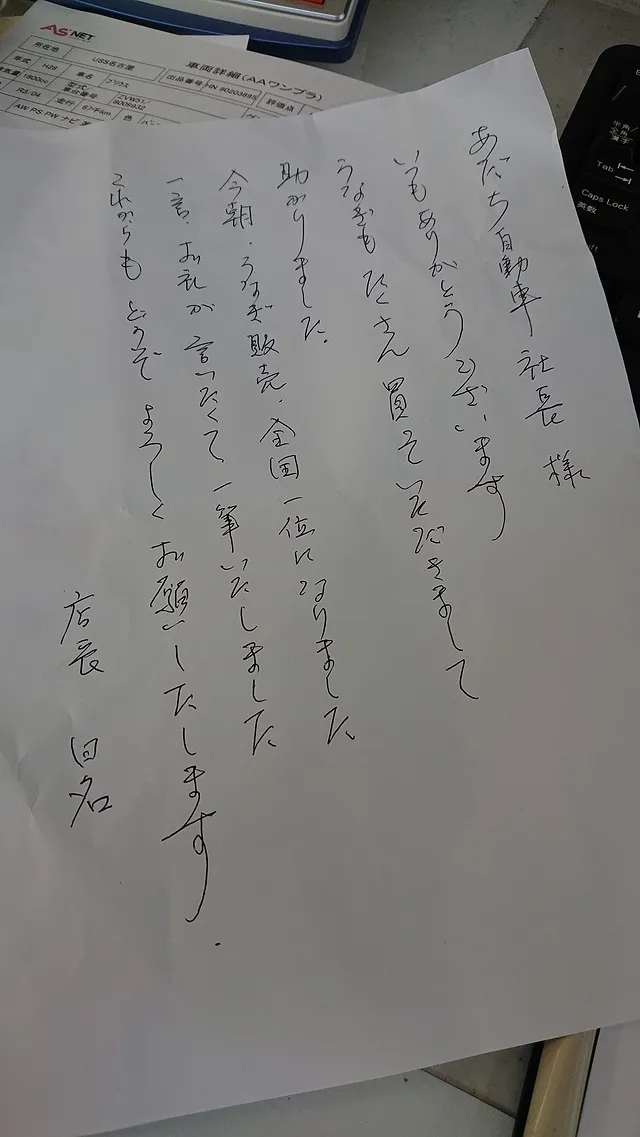 あだち自動車 社長 様
いつもありがとうございます
うなぎも たくさん 買って いただきまして
助かりました.
今朝.うなぎ販売.全国一位になりました
一言.お礼が 言いたくて 一筆いたしました
これからも どうぞ よろしく お願いいたします.
店長 田名
AS NET
車両詳細(AAワンプラ)
所在地 USS名古屋 出品番号 HN 80203895 評価点
年式 H28 車名 プリウス
1800cc 型式 車台番号 ZVW51/
R5/04 走行 色
AW PS PW ナビ
半角/
全角
漢字
Tab
Caps Lock
英数